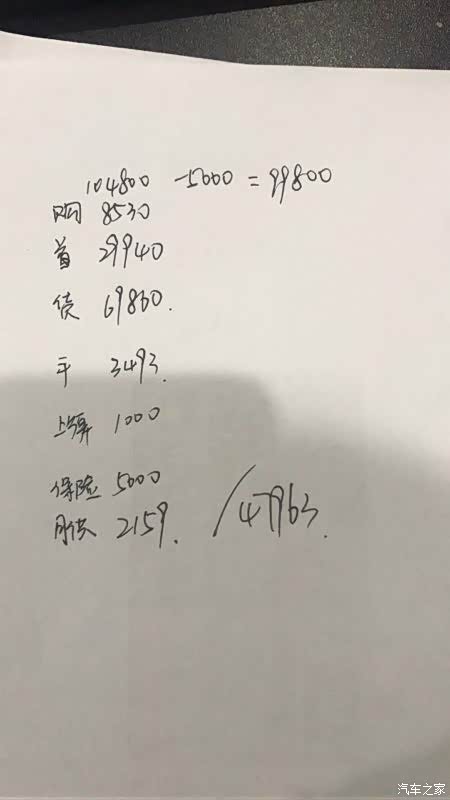 104800 -5000 = 99800
购 8530
首 29940
贷 69860.
手 3493.
上牌 1000
保险 5000
月供 2159. /47963.
汽车之家